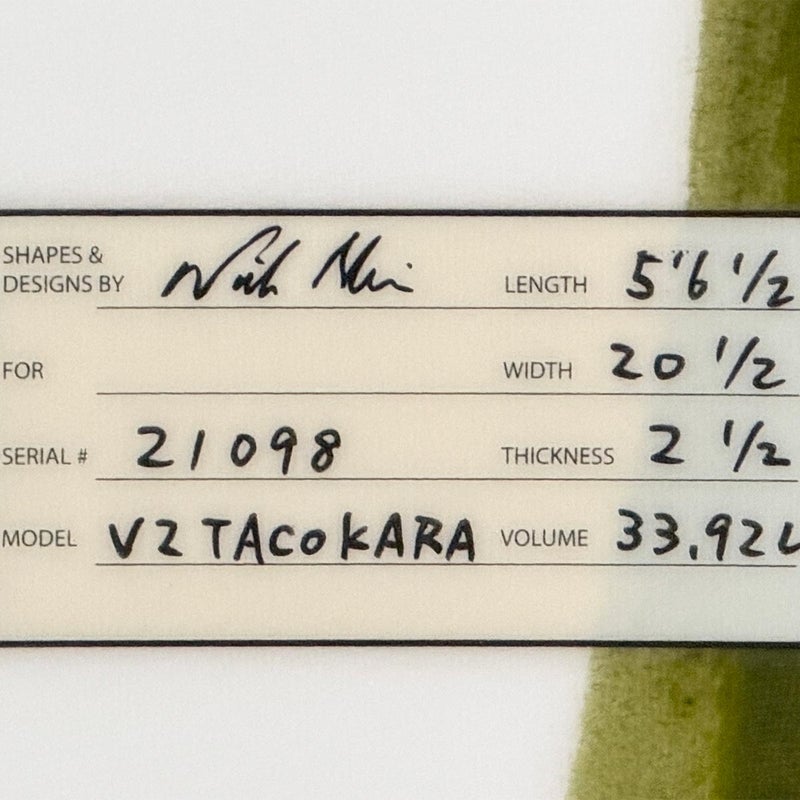 SHAPES &
DESIGNS BY LENGTH 5'6 1/2
FOR WIDTH 20 1/2
SERIAL # 21098 THICKNESS 2 1/2
MODEL V2 TACOKARA VOLUME 33.92L